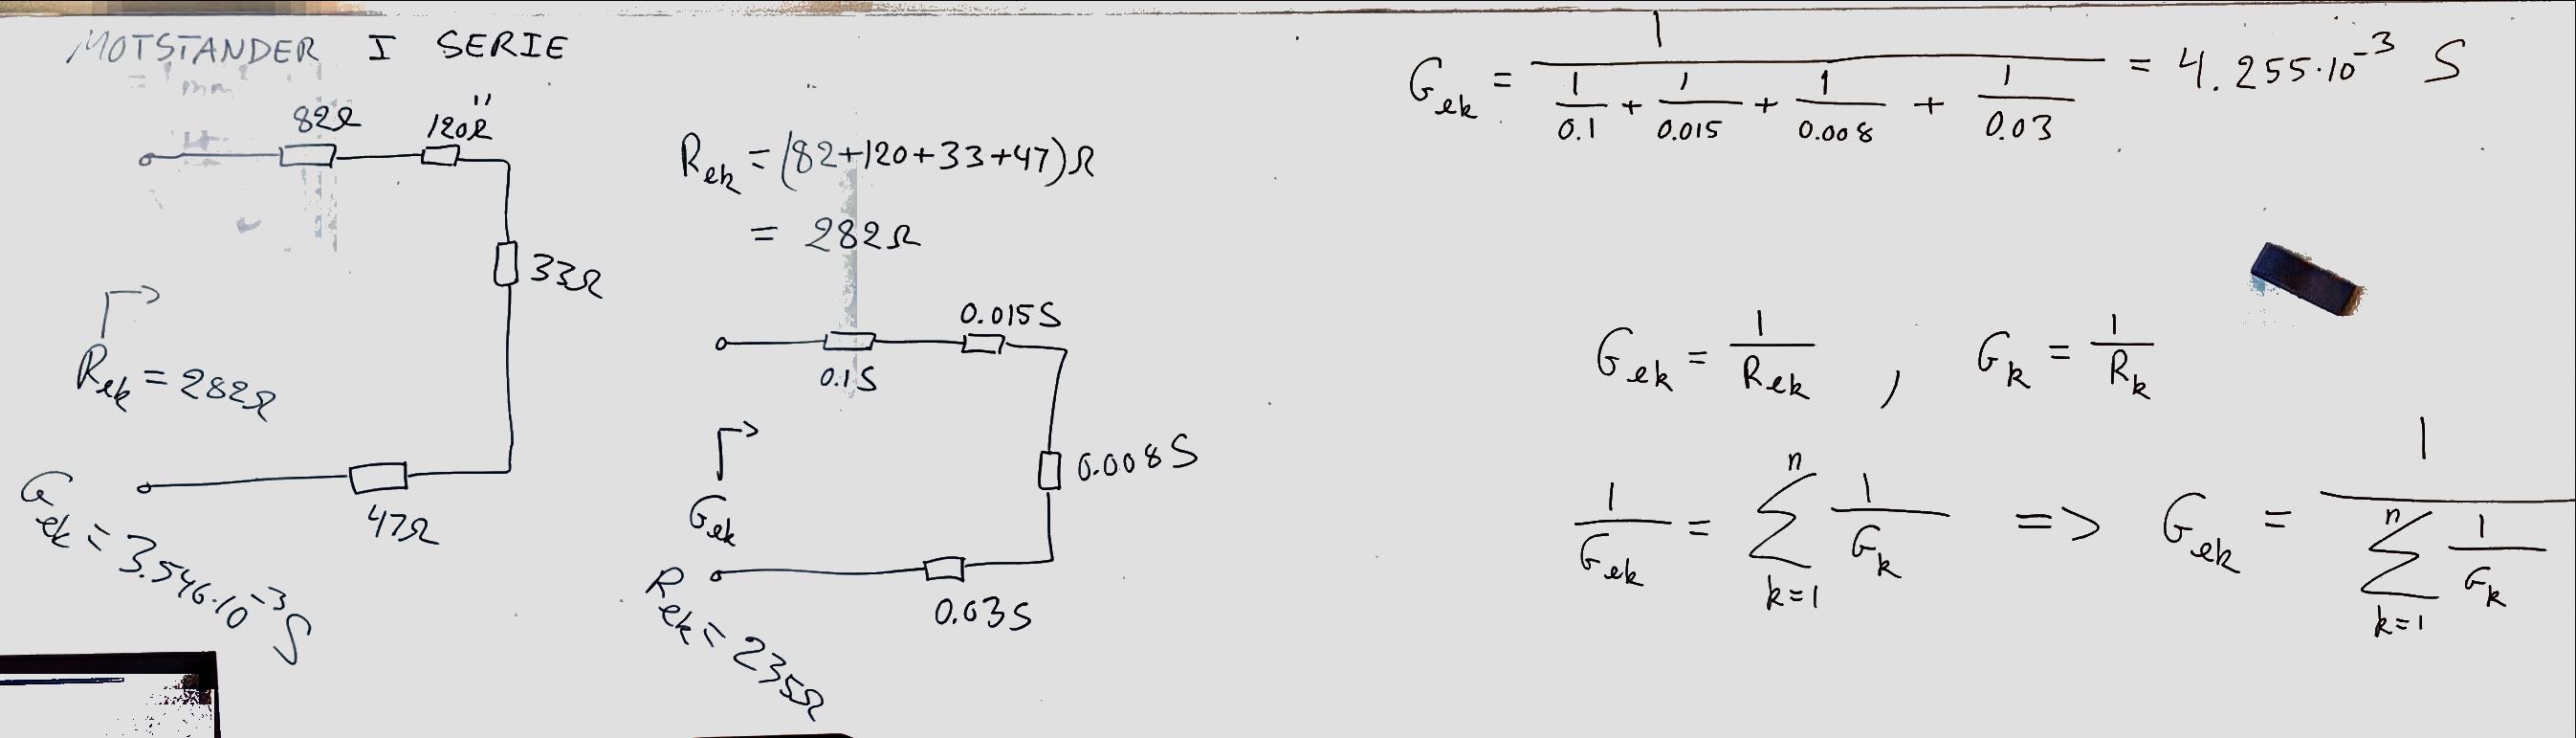 MOTSTANDER I SERIE
82Ω
120Ω
33Ω
47Ω
R_ek = 282Ω
G_ek = 3.546·10^-3 S
R_ek = (82+120+33+47)Ω
= 282Ω
0.015S
0.1S
0.008S
0.03S
G_ek
R_ek = 235Ω
G_ek = 1 / (1/0.1 + 1/0.015 + 1/0.008 + 1/0.03) = 4.255·10^-3 S
G_ek = 1/R_ek , G_k = 1/R_k
1/G_ek = Σ_{k=1}^{n} 1/G_k => G_ek = 1 / (Σ_{k=1}^{n} 1/G_k)